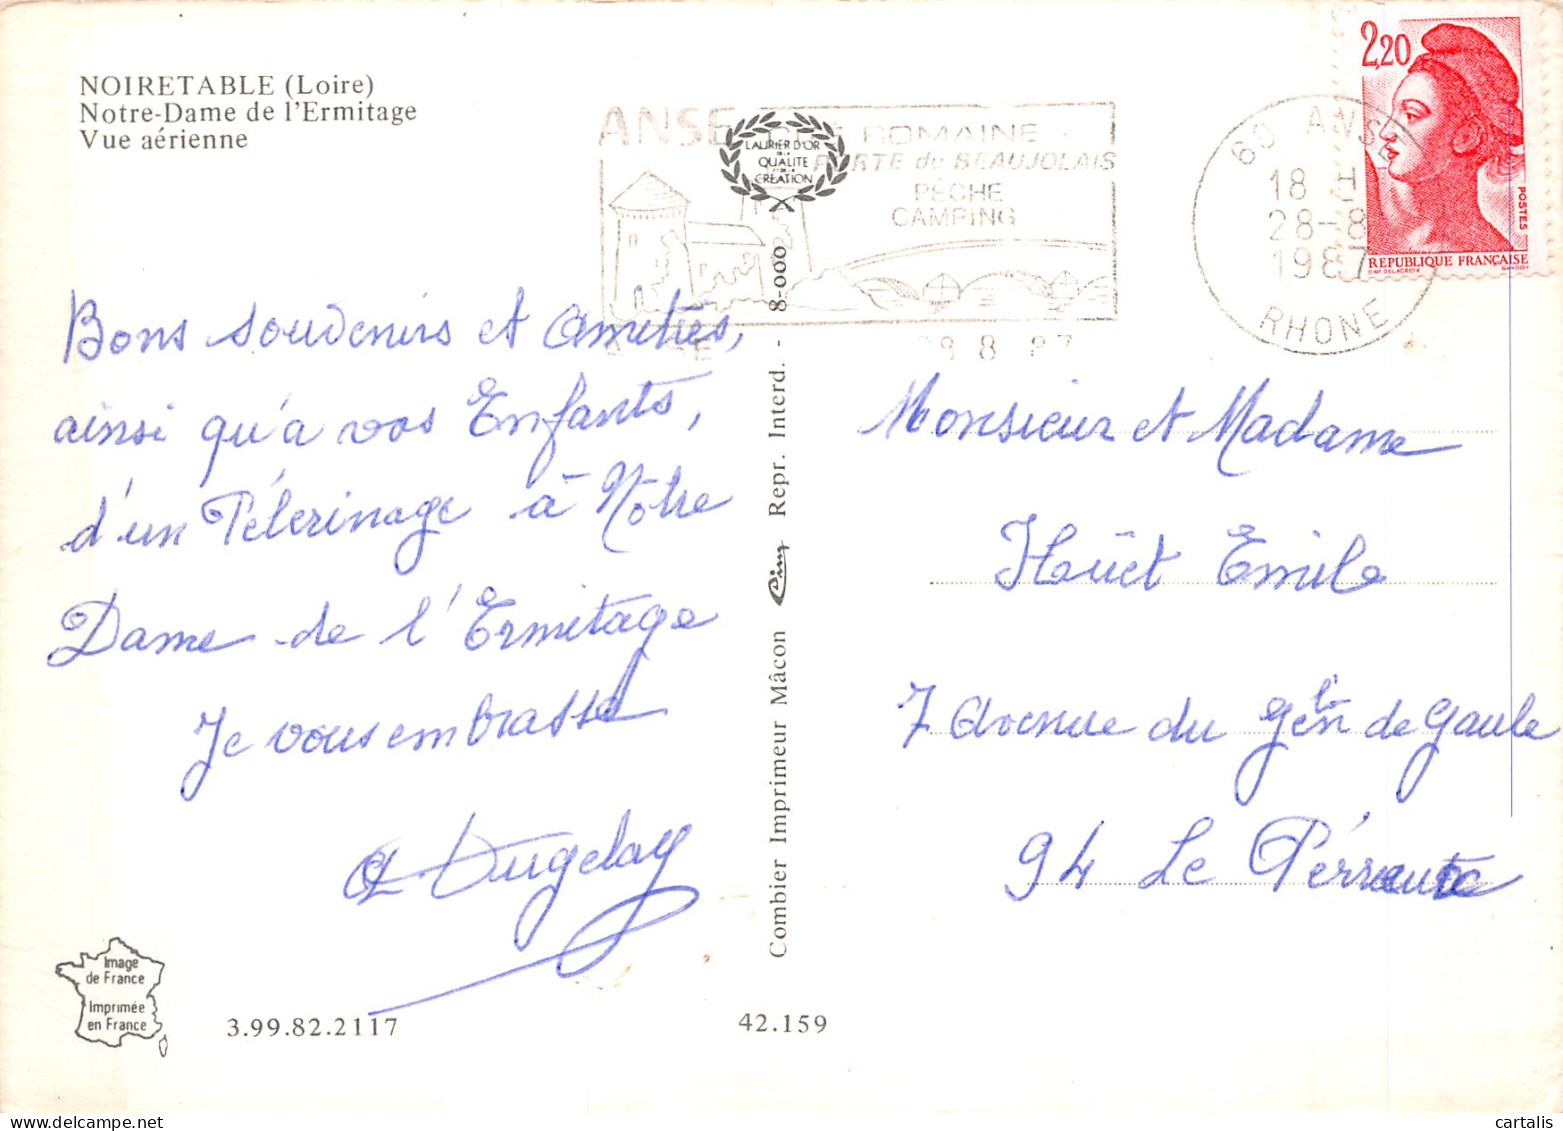 NOIRETABLE (Loire)
Notre-Dame de l'Ermitage
Vue aérienne
Bons souvenirs et Amitiés,
ainsi qu'a vos Enfants,
d'un Pélerinage à Nôtre
Dame de l'Ermitage
Je vous embrasse
Dugelay
Image
de France
Imprimée
en France
3.99.82.2117
42.159
Combier Imprimeur Mâcon Cim Repr. Interd. - 8-000
LAURIER D'OR
DE LA
QUALITE
ET DE LA
CREATION
ANSE CITÉ ROMAINE
PORTE du BEAUJOLAIS
PÊCHE
CAMPING
28 8 87
69 ANSE
18 H
28-8
1987
RHONE
2,20
POSTES
REPUBLIQUE FRANÇAISE
D'AP. DELACROIX GANDON
Monsieur et Madame
Hüet Emile
7 Avenue du Gén de Gaule
94 Le Pérreute
cartalis